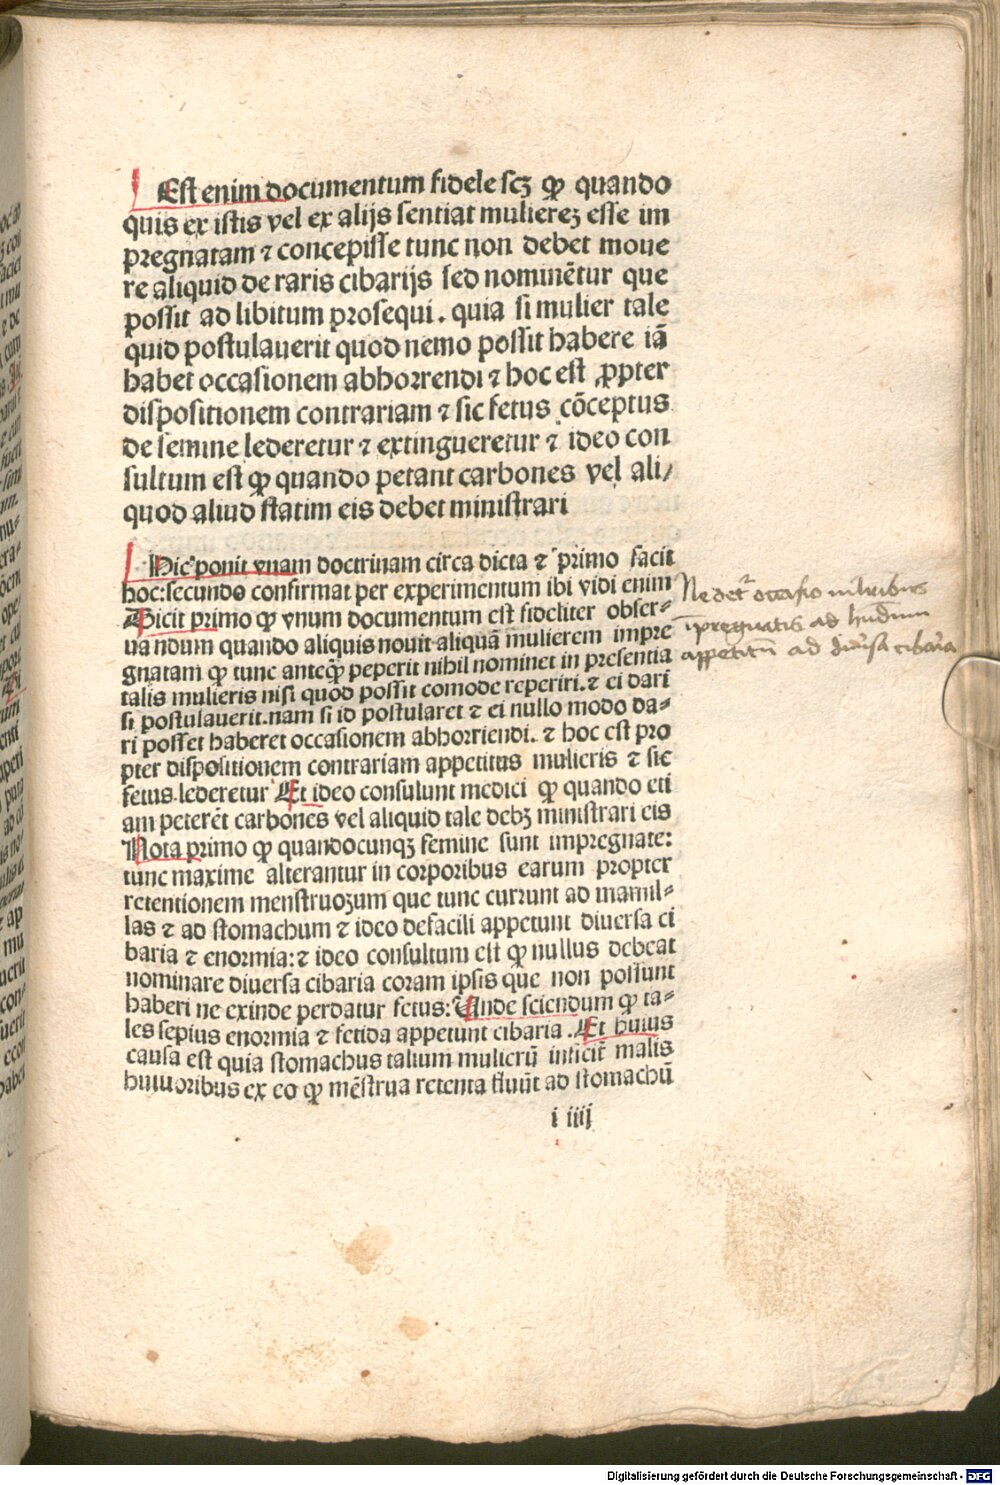 Est enim documentum fidele scꝫ ꝙ quando
quis ex istis vel ex alijs sentiat muliereꝫ esse im
pregnatam ⁊ concepisse tunc non debet moue
re aliquid de raris cibarijs sed nominētur que
possit ad libitum prosequi. quia si mulier tale
quid postulauerit quod nemo possit habere iā
habet occasionem abhorrendi ⁊ hoc est ꝓpter
dispositionem contrariam ⁊ sic fetus cōceptus
de semine lederetur ⁊ extingueretur ⁊ ideo con
sultum est ꝙ quando petant carbones vel ali/
quod aliud statim eis debet ministrari
Hic ponit vnam doctrinam circa dicta ⁊ primo facit
hoc: secundo confirmat per experimentum ibi vidi enim
Dicit primo ꝙ vnum documentum est fideliter obser-
uandum quando aliquis nouit aliquā mulierem impre
gnatam ꝙ tunc anteꝙ̄ peperit nihil nominet in presentia
talis mulieris nisi quod possit comode reperiri. ⁊ ei dari
si postulauerit. nam si id postularet ⁊ ei nullo modo da-
ri posset haberet occasionem abhorriendi. ⁊ hoc est pro
pter dispositionem contrariam appetitus mulieris ⁊ sic
fetus lederetur Et ideo consulunt medici ꝙ quando eti
am peterēt carbones vel aliquid tale debꝫ ministrari eis
Nota primo ꝙ quandocunqꝫ femine sunt impregnate:
tunc maxime alterantur in corporibus earum propter
retentionem menstruoꝝum que tunc currunt ad mamil-
las ⁊ ad stomachum ⁊ ideo defacili appetunt diuersa ci
baria ⁊ enormia: ⁊ ideo consultum est ꝙ nullus debeat
nominare diuersa cibaria coram ipsis que non possunt
haberi ne exinde perdatur fetus: Unde sciendum ꝙ ta-
les sepius enormia ⁊ fetida appetunt cibaria. Et huius
causa est quia stomachus talium mulierū inficit̄ malis
humoribus ex eo ꝙ mēstrua retenta fluūt ad stomachū
i iiij
Ne det̄ occasio mulieribus
īpregnatis ad
appetitū ad diu'sa cibaria
Digitalisierung gefördert durch die Deutsche Forschungsgemeinschaft - DFG